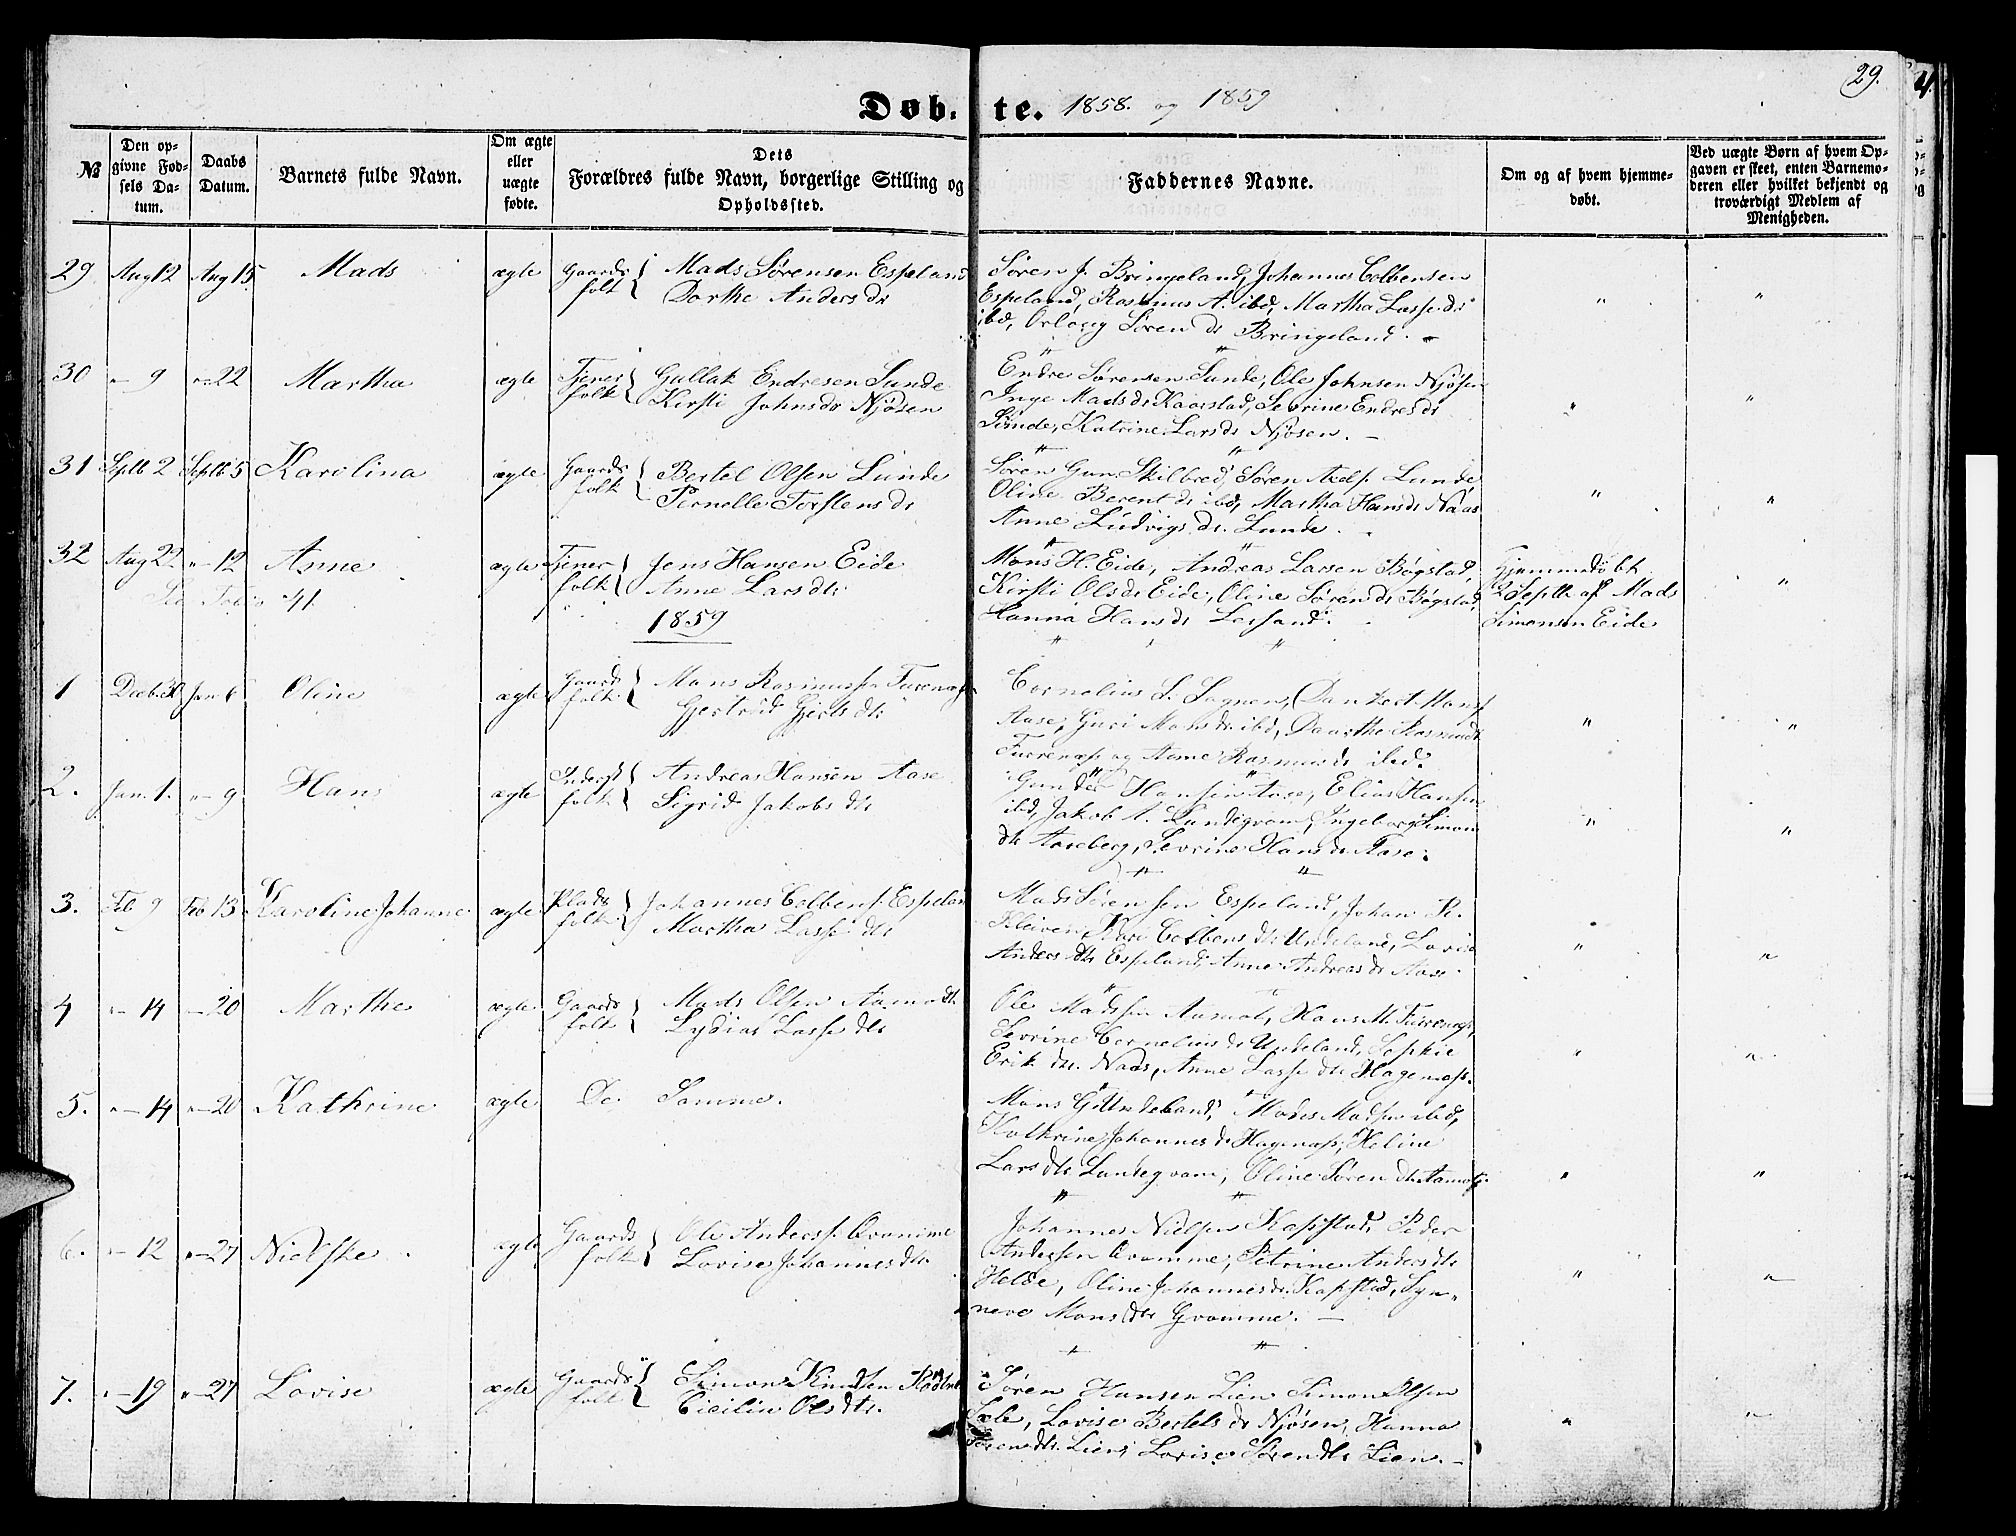 29.
Døb. te. 1858. og 1859
№
Den op-
givne Fød-
sels Da-
tum.
Daabs
Datum.
Barnets fulde Navn.
Om ægte
eller
uægte
fødte.
Dets
Forældres fulde Navn, borgerlige Stilling og
Opholdssted.
Faddernes Navne.
Om og af hvem hjemme-
døbt.
Ved uægte Børn af hvem Op-
gaven er skeet, enten Barnemo-
deren eller hvilket bekjendt og
troværdigt Medlem af
Menigheden.
29 Aug 12 Aug 15 Mads ægte Gaards folk Mads Sørensen Espeland
Dorthe Anders dr
Søren J. Bringeland, Johannes Colbensen
Espeland, Rasmus A. ibd, Martha Lasse dr
ibd, Søren dr Bringeland. " "
30 " 9 " 22 Martha ægte Tjener folk Gullak Endresen Sunde
Kirsti Johnsdr Njøsen
Endre Sørensen Sunde, Ole Johnsen Njøsen
Inge Mads dr Kaarstad, Sevrine Endres dr
Sunde, Katrine Lars dr Njøsen. " "
31 Septb 2 Septb 5 Karolina ægte Gaards folk Bertel Olsen Lunde
Pernelle Torstens dr
Søren Gun. Skilbred, Søren Lunde
Oline Berent dr ibd, Martha Hans dr Naas
Anne Ludvigs dr. Lunde. " "
32 Aug 22 " 12 Anne ægte Tjener folk Jens Hansen Eide
Anne Lars dtr
Mons H. Eide, Andreas Larsen Bøgstad,
Kirsti Ols dr Eide, Oline Søren dr Bøgstad,
Hanna Hans dr
Hjemmedøbt
2 Septb af Mads
Simonsen Eide "
41.
1859
1 Decb. 30 Jan 6 Oline ægte Gaards folk Mons Rasmussen Furenæs
Gjertrud Gjerts dr
Cornelius S. Sagnen, Dankert Hans
Aase, Guri Mons dr ibd, Daarthe
Furenæs og Anne Rasmus dr ibd. " "
2. Jan. 1. " 9 Hans ægte folk Andreas Hansen Aase
Sigrid Jakobs dtr
Gunder Hansen Aase, Elias Hansen
ibd, Jakob A. Lundegvam, Ingeborg Simon
dtr Aaseberg, Sevrine Hans dr Aase. " "
3. Feb 9 Feb 13 Karoline Johanne ægte Plads folk Johannes Colbens. Espeland
Martha Lasse dtr
Mads Sørensen Espeland, Johan R.
Kleiven, Kari Colbens dtr Undeland, Lovise
Anders dtr Espeland, Anne Andreas dr Aase. " "
4 " 14 " 20 Marthe ægte Gaards folk Mads Olsen Aamodt
Lydia Lasse dtr
Ole Madsen Aamot, Hans M. Furenæs,
Sevrine Cornelius dr Undeland, Sophie
Erik dtr. Naas, Anne Lasse dtr Hagenæs. " "
5. " 14 " 20 Kathrine ægte De Samme.
Mons G. Undeland, Mons Madsen ibd,
Kathrine Johannes dr Hagenæs, Heline
Lars dtr Lundegvam, Oline Søren dtr Aamot. " "
6. " 12 " 27 Nielske ægte Gaards folk Ole Anders. Qvamme
Lovise Johannes dtr.
Johannes Nielsen Kapstad, Peder
Andersen Qvamme, Petrine Anders dtr
Helde, Oline Johannes dr. Kapstad, Syn-
neve Mons dtr Gvamme. " "
7. " 19 " 27 Lovise ægte Gaards folk Simon Knudsen
Cicilie Ols dtr.
Søren Hansen Lien Simon Olsen
Sæle, Lovise Bertels dr Njøsen, Hanna
Søren dtr. Lien, Lovise Søren dtr Lien. " "